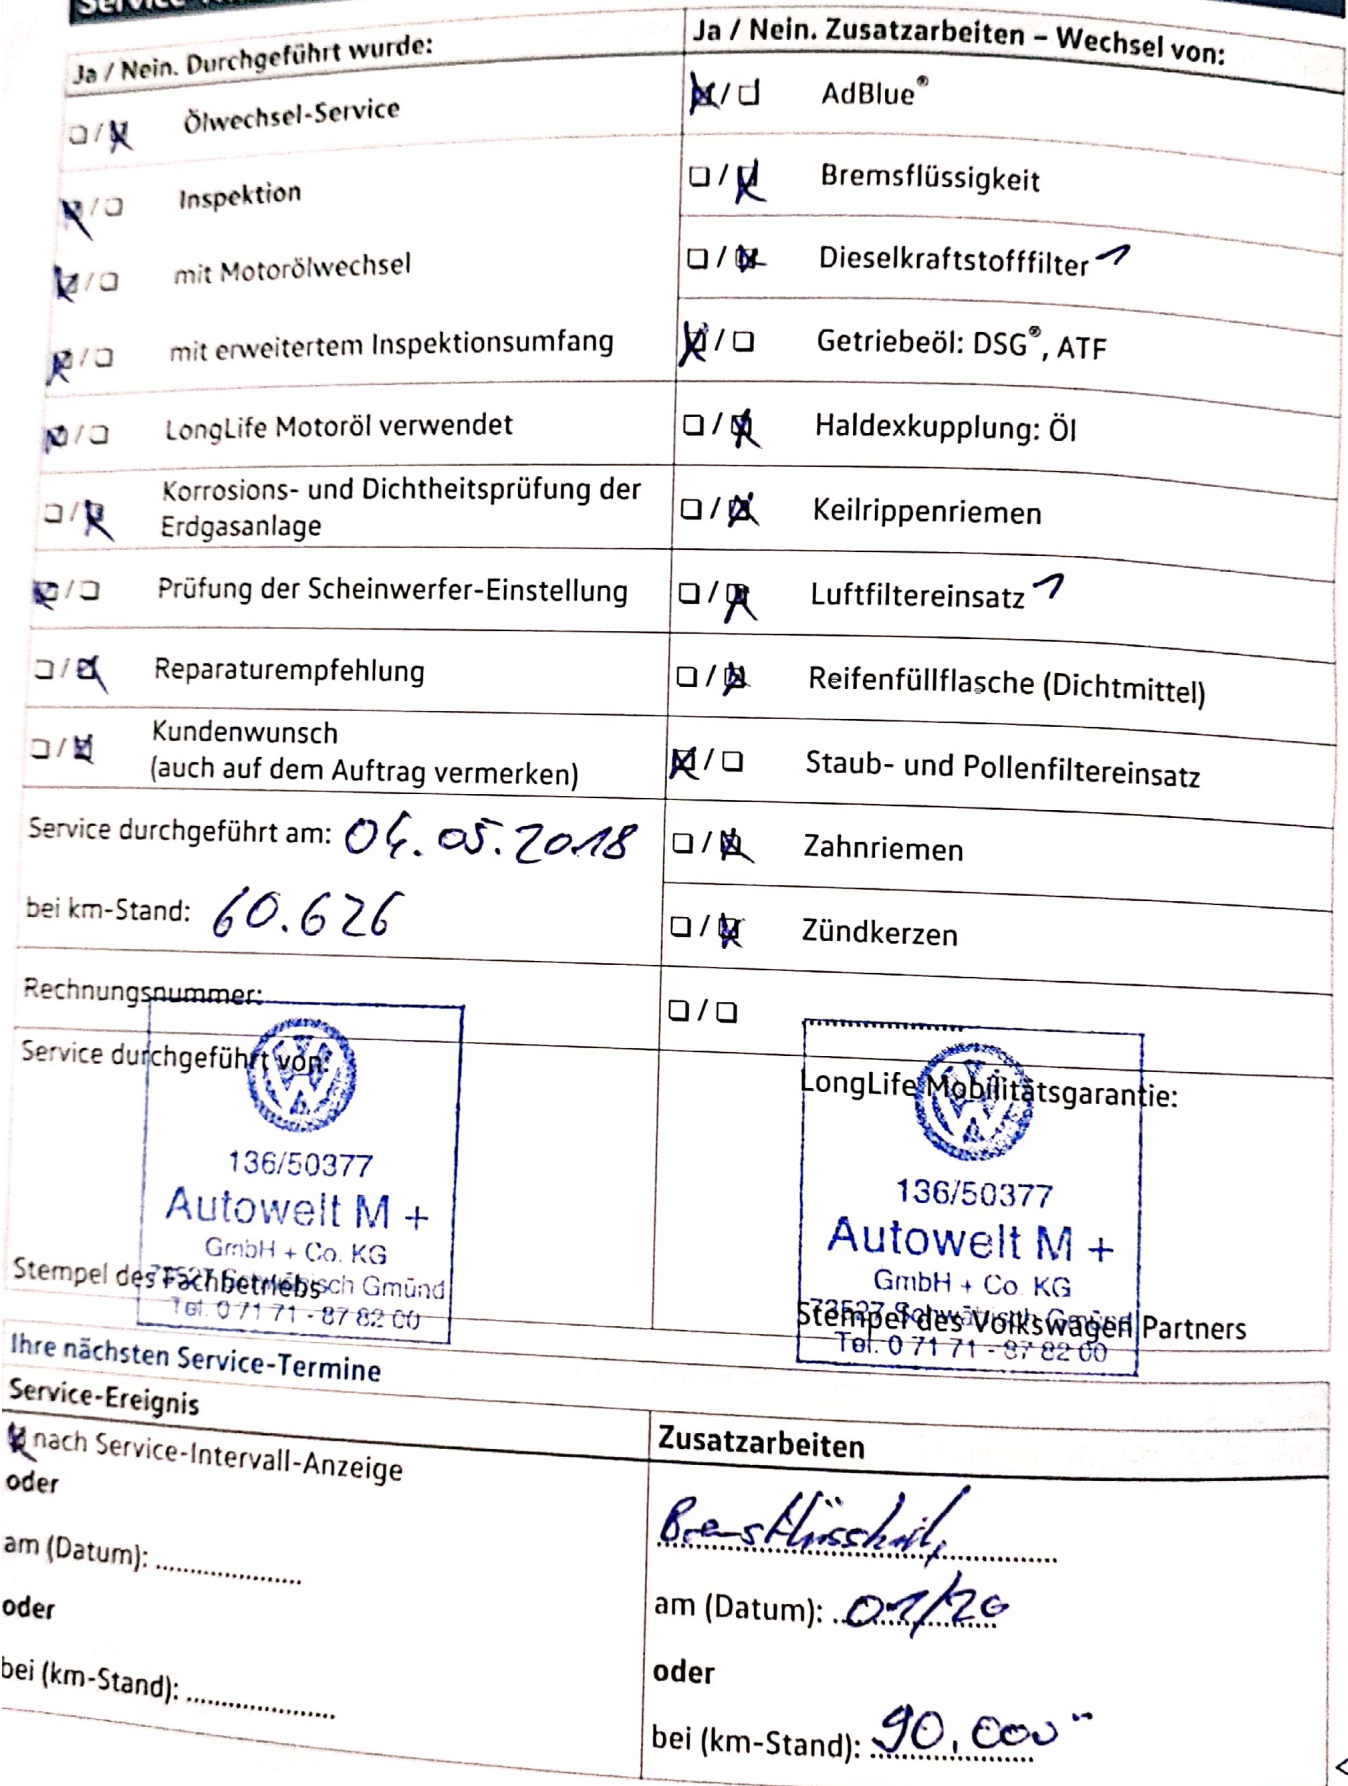 Ja / Nein. Durchgeführt wurde:
☐ / ☒ Ölwechsel-Service
☒ / ☐ Inspektion
☒ / ☐ mit Motorölwechsel
☒ / ☐ mit erweitertem Inspektionsumfang
☒ / ☐ LongLife Motoröl verwendet
☐ / ☒ Korrosions- und Dichtheitsprüfung der
Erdgasanlage
☒ / ☐ Prüfung der Scheinwerfer-Einstellung
☐ / ☒ Reparaturempfehlung
☐ / ☒ Kundenwunsch
(auch auf dem Auftrag vermerken)
Service durchgeführt am: 04.05.2018
bei km-Stand: 60.626
Rechnungsnummer:
Service durchgeführt von:
136/50377
Autowelt M +
GmbH + Co. KG
73527 Schwäbisch Gmünd
Tel. 0 71 71 - 87 82 00
Stempel des Fachbetriebs
Ja / Nein. Zusatzarbeiten – Wechsel von:
☒ / ☐ AdBlue®
☐ / ☒ Bremsflüssigkeit
☐ / ☒ Dieselkraftstofffilter
☒ / ☐ Getriebeöl: DSG®, ATF
☐ / ☒ Haldexkupplung: Öl
☐ / ☒ Keilrippenriemen
☐ / ☒ Luftfiltereinsatz
☐ / ☒ Reifenfüllflasche (Dichtmittel)
☒ / ☐ Staub- und Pollenfiltereinsatz
☐ / ☒ Zahnriemen
☐ / ☒ Zündkerzen
☐ / ☐
LongLife Mobilitätsgarantie:
136/50377
Autowelt M +
GmbH + Co. KG
73527 Schwäbisch Gmünd
Tel. 0 71 71 - 87 82 00
Stempel des Volkswagen Partners
Ihre nächsten Service-Termine
Service-Ereignis
☒ nach Service-Intervall-Anzeige
oder
am (Datum): ........................
oder
bei (km-Stand): ........................
Zusatzarbeiten
am (Datum): 01/20
oder
bei (km-Stand): 90.000